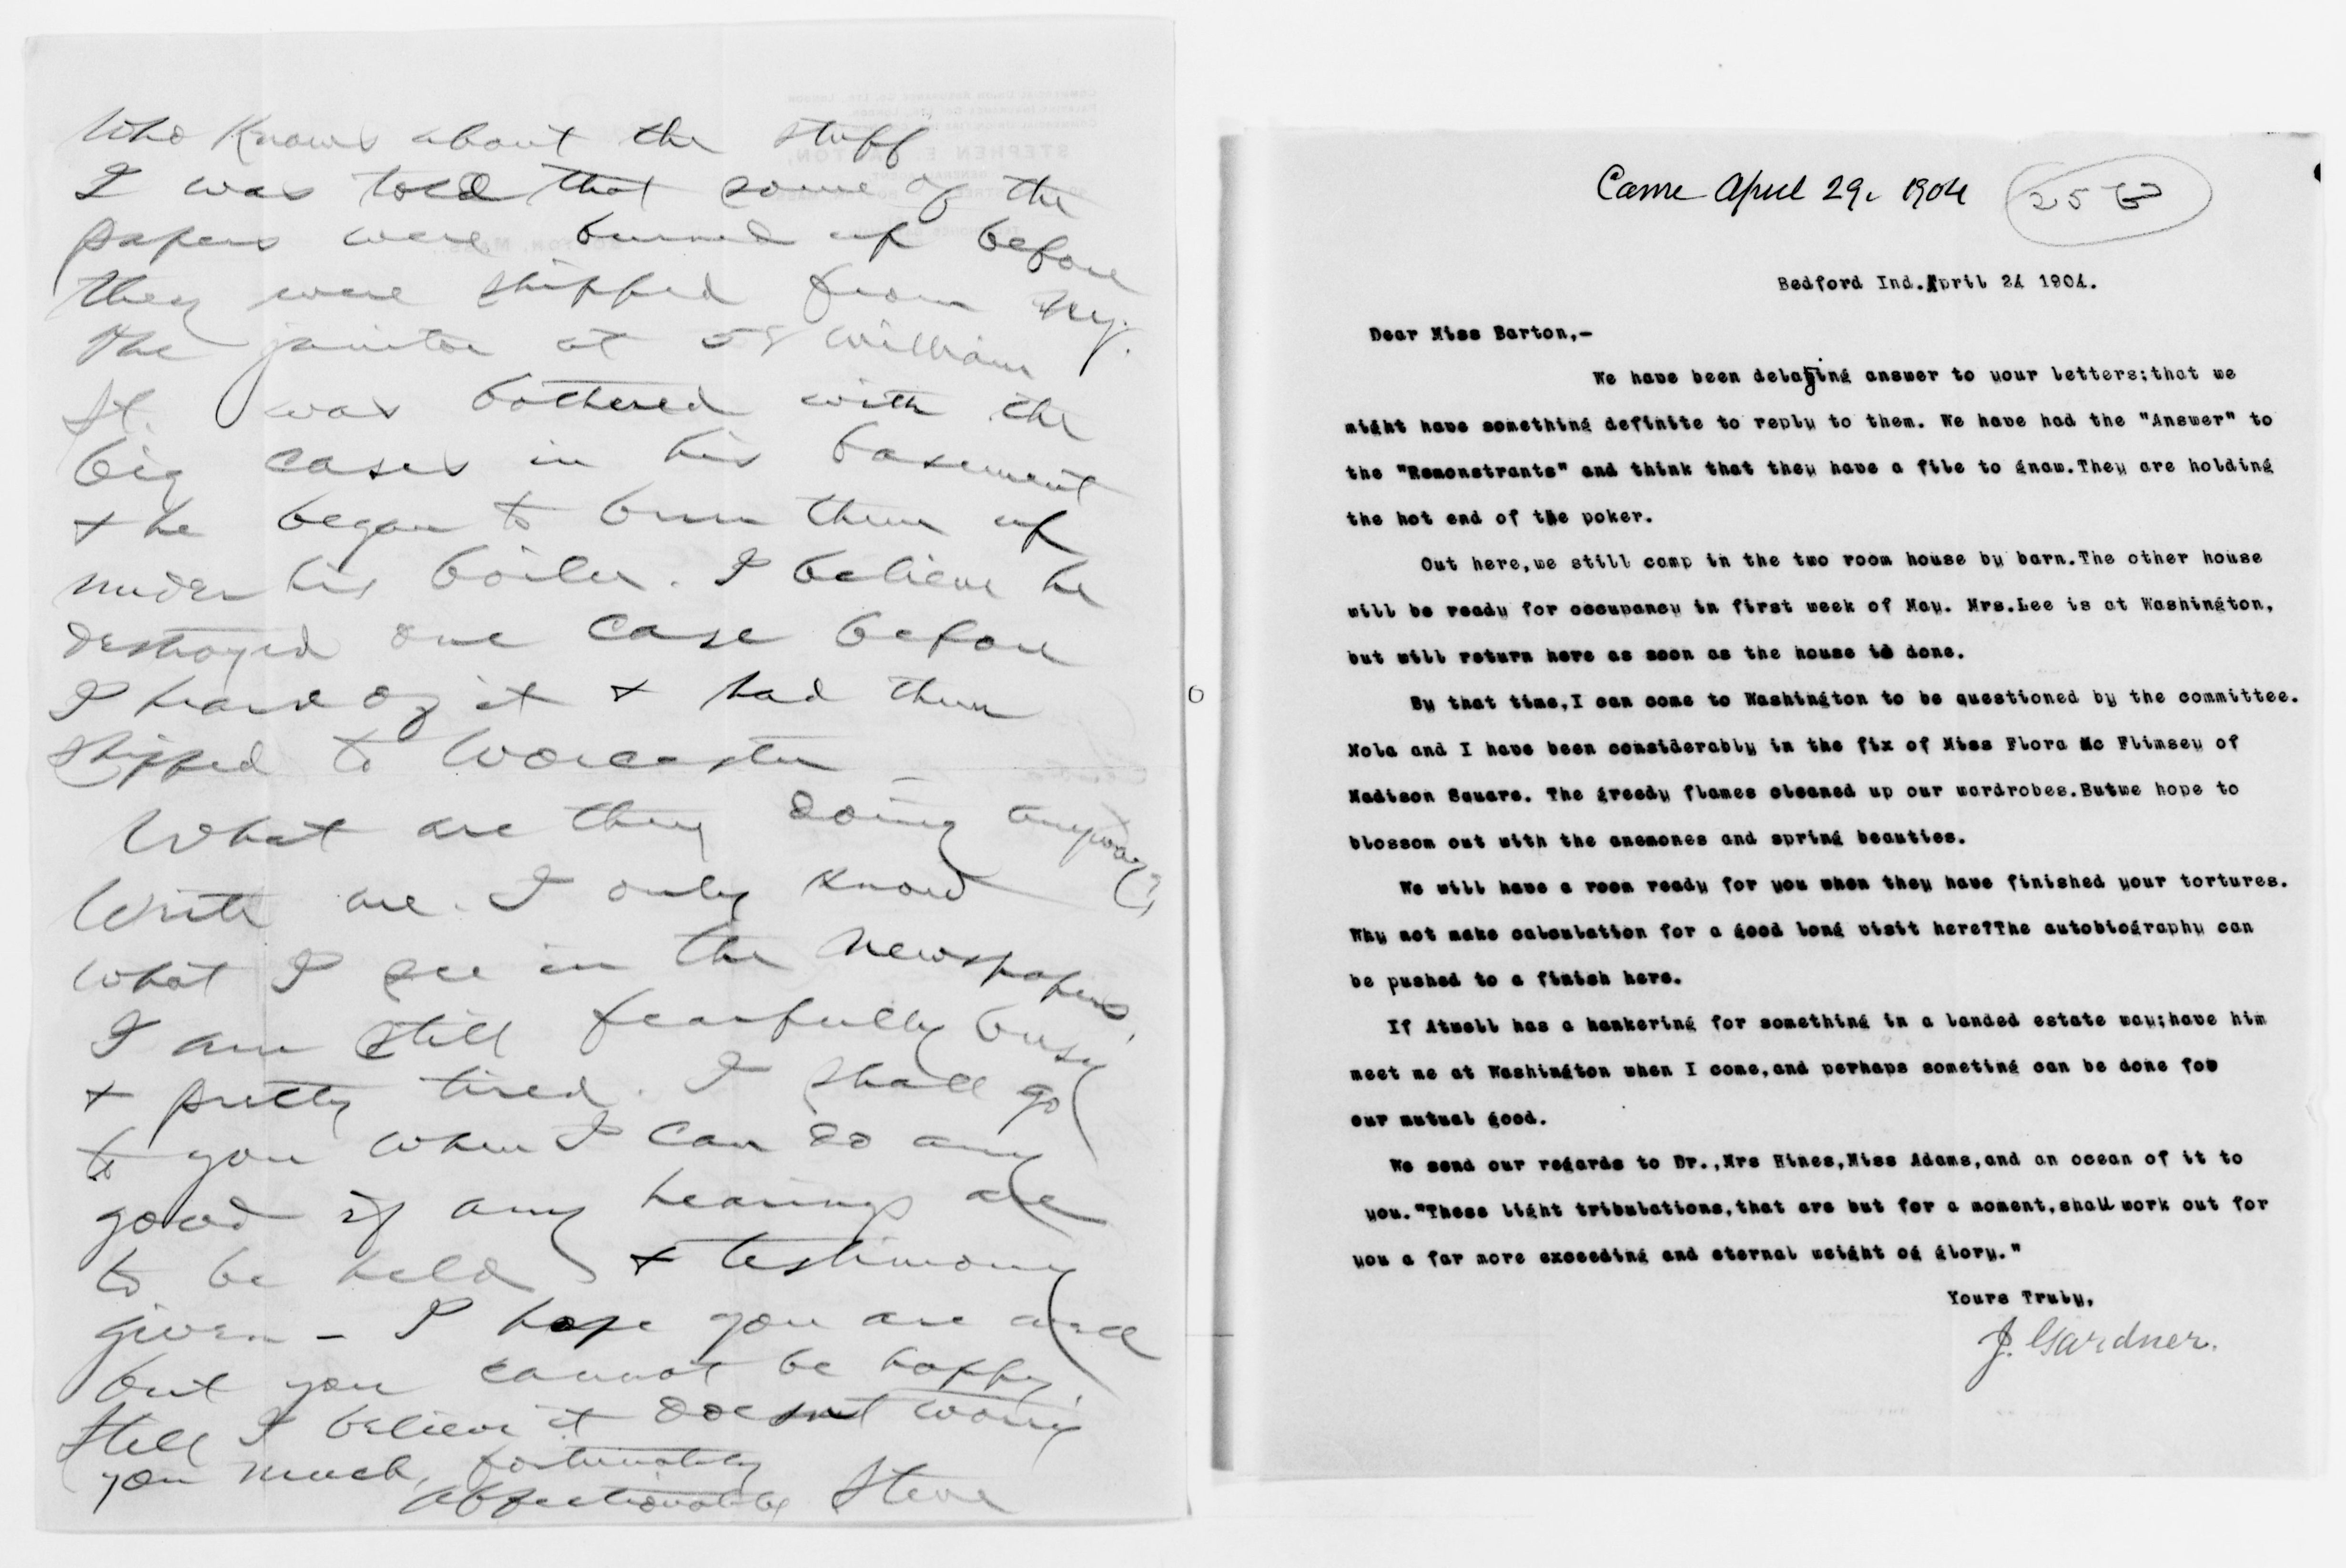 Who knows about the stuff
I was told that some of the
papers were burned up before
they were shipped from N.Y.
The janitor at 58 William
St. was bothered with the
big cases in his basement
+ he began to burn them up
under his boiler. I believe he
destroyed one case before
I heard of it + had them
shipped to Worcester –
What are they doing anyway?
Write me. I only know
what I see in the newspapers.
I am still fearfully busy
+ pretty tired. I shall go
to you when I can do any
good if any hearings are
to be held + testimony
given – I hope you are well
but you cannot be happy.
Still I believe it doesnt worry
you much, fortunately
affectionately Steve
STEPHEN E. BARTON,
BOSTON, MASS.
Came April 29, 1904
Bedford Ind. April 24 1904.
Dear Miss Barton,-
We have been delaying answer to your letters;that we
might have something definite to reply to them. We have had the "Answer" to
the "Remonstrants" and think that they have a file to gnaw.They are holding
the hot end of the poker.
Out here,we still camp in the two room house by barn.The other house
will be ready for occupancy in first week of May. Mrs.Lee is at Washington,
but will return here as soon as the house is done.
By that time,I can come to Washington to be questioned by the committee.
Nola and I have been considerably in the fix of Miss Flora Mc Flimsey of
Madison Square. The greedy flames cleaned up our wardrobes.Butwe hope to
blossom out with the anemones and spring beauties.
We will have a room ready for you when they have finished your tortures.
Why not make calculation for a good long visit here?The autobiography can
be pushed to a finish here.
If Atwell has a hankering for something in a landed estate way;have him
meet me at Washington when I come,and perhaps someting can be done for
our mutual good.
We send our regards to Dr.,Mrs Hines,Miss Adams,and an ocean of it to
you."These light tribulations,that are but for a moment,shall work out for
you a far more exceeding and eternal weight og glory."
Yours Truly,
J. Gardner.